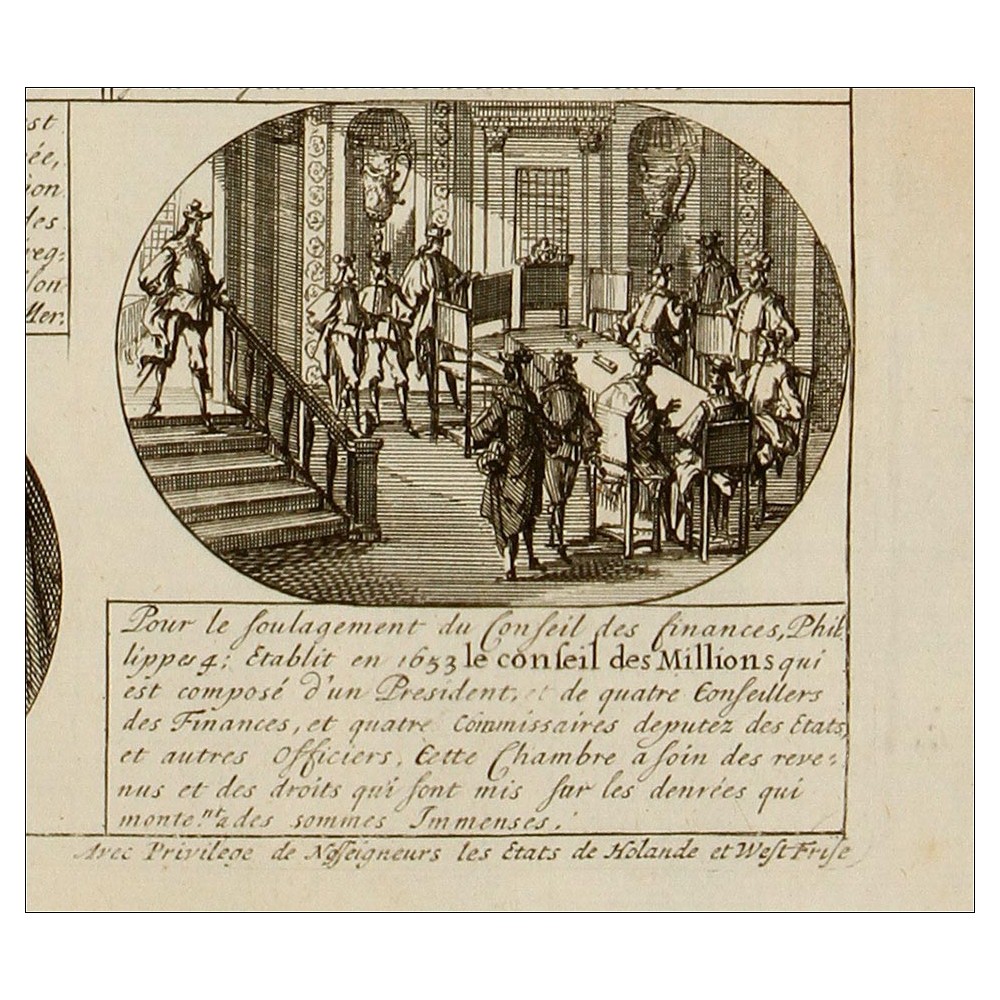 st
ée,
ion
des
reg:
ſon
ller.
Pour le ſoulagement du Conſeil des finances, Phi-
lippes 4; Etablit en 1653 le conſeil des Millions qui
est composé d'un President, et de quatre Conſeillers
des Finances, et quatre Commissaires deputez des Etats,
et autres Officiers, Cette Chambre a ſoin des reve-
nus et des droits qui ſont mis ſur les denrées qui
monte.nt a des sommes Immenses.
Avec Privilege de Noſſeigneurs les Etats de Holande et Weſt Friſe